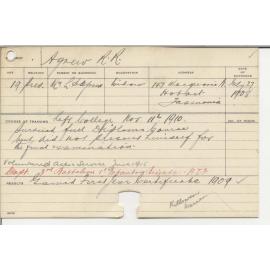 Agnew R.R.
AGE RELIGION PARENT OR GUARDIAN OCCUPATION ADDRESS DATE OF ENTRANCE
19 Pres. Mrs L. Agnew Widow 187 Macquarie St July 27
Hobart 1908
Tasmania
COURSE OF TRAINING Left College Nov 11th 1910.
Pursued full Diploma Course
but did not present himself for
the final examination.
Volunteered Active Service June 1915
3rd Battalion 1st Infantry Brigade
RESULTS Gained First Year Certificate 1909